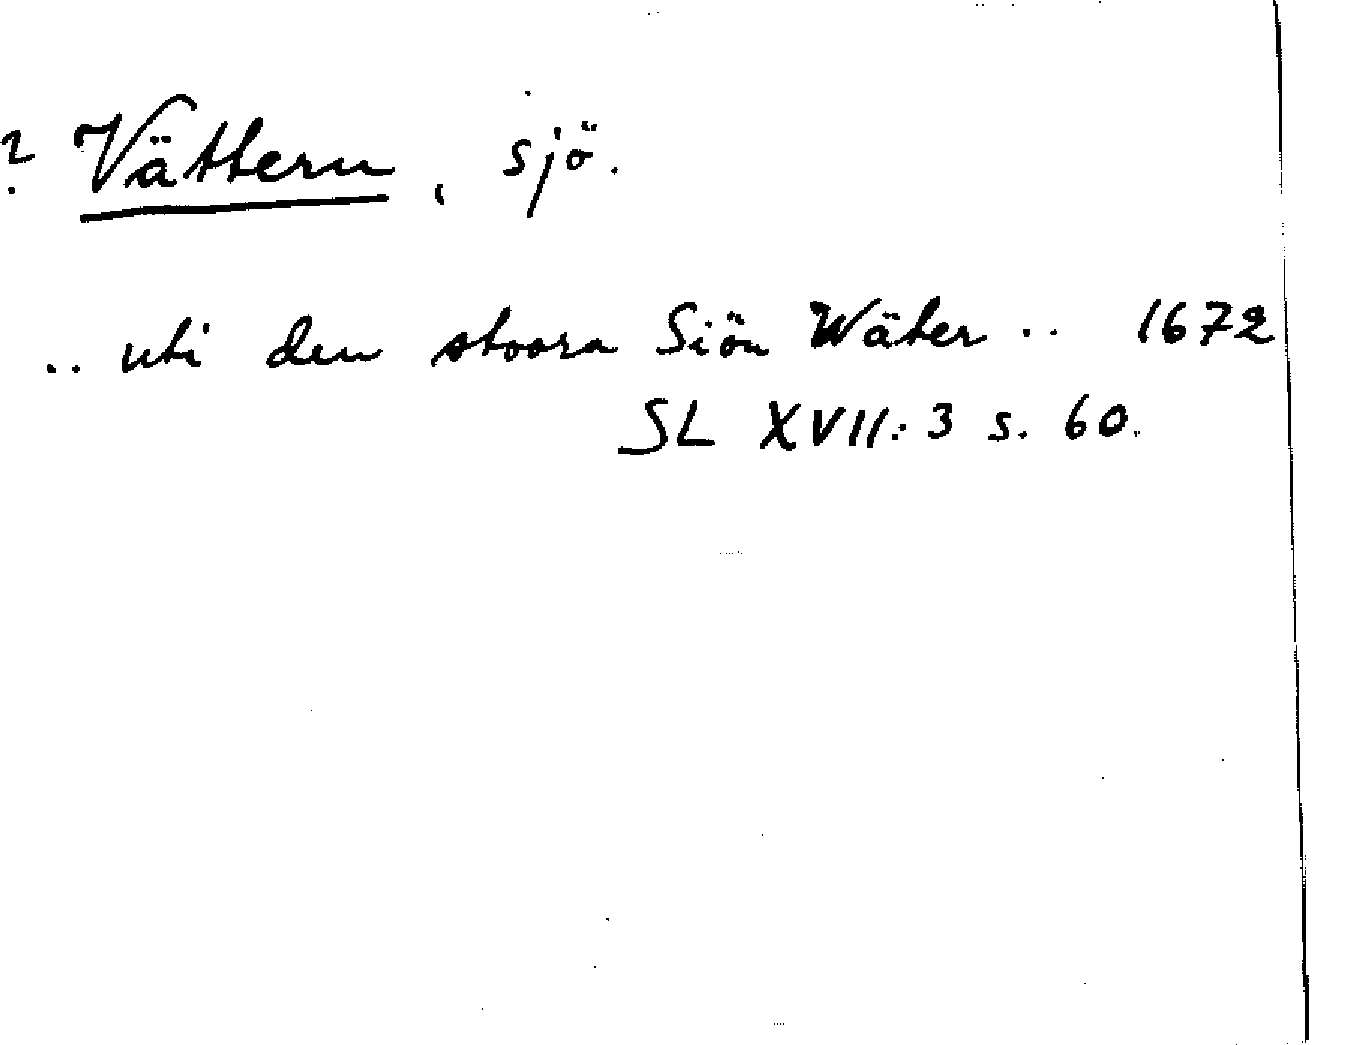 ? Vättern, sjö.
.. uti den stoora Siön Wäter .. 1672
SL XVII:3 s. 60.